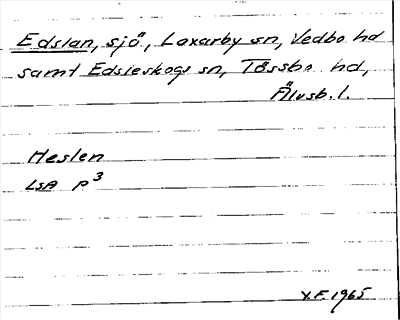 Edslan, sjö, Laxarby sn, Vedbo hd
samt Edsleskogs sn, Tössbo hd,
Älvsb. l.
Heslen
LsA p³
Y.F. 1965